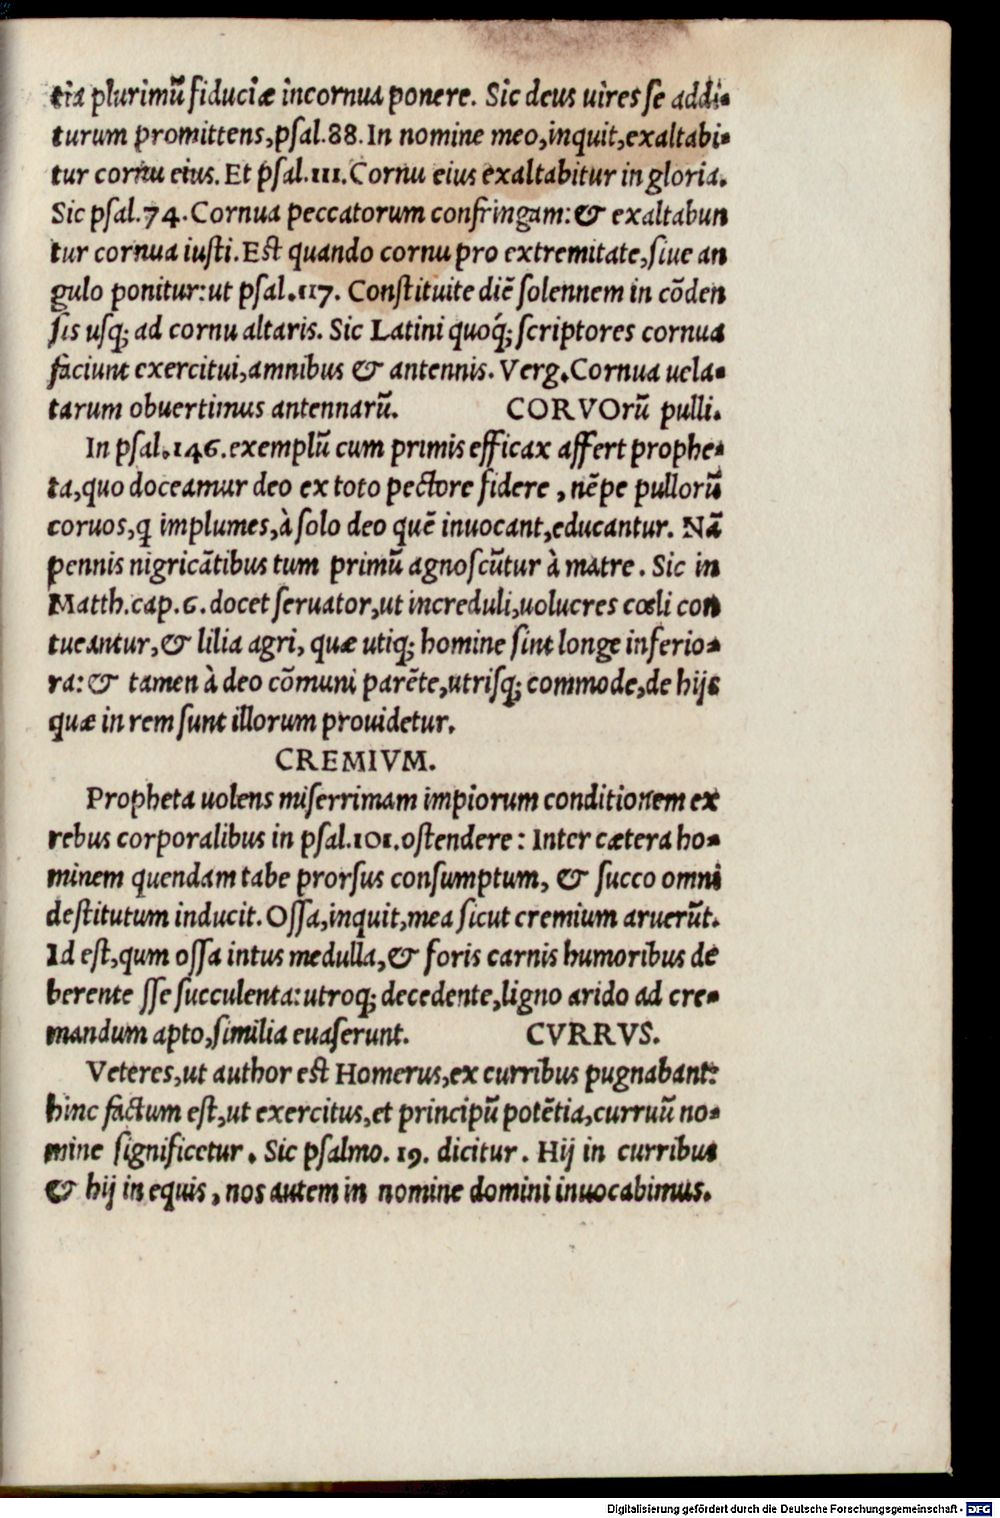 tia plurimũ fiduciæ in cornua ponere. Sic deus uires se addi-
turum promittens, psal.88. In nomine meo, inquit, exaltabi-
tur cornu eius. Et psal.111. Cornu eius exaltabitur in gloria.
Sic psal.74. Cornua peccatorum confringam: & exaltabun
tur cornua iusti. Est quando cornu pro extremitate, siue an
gulo ponitur: ut psal.117. Constituite diẽ solennem in cõden
sis usq; ad cornu altaris. Sic Latini quoq́; scriptores cornua
faciunt exercitui, amnibus & antennis. Verg. Cornua uela-
tarum obuertimus antennarũ. CORVOrũ pulli.
In psal.146. exemplũ cum primis efficax affert prophe-
ta, quo doceamur deo ex toto pectore fidere, nẽpe pullorũ
coruos, q implumes, à solo deo quẽ inuocant, educantur. Nã
pennis nigricãtibus tum primũ agnoscũtur à matre. Sic in
Matth. cap.6. docet seruator, ut increduli, uolucres cœli con
tueantur, & lilia agri, quæ utiq; homine sint longe inferio-
ra: & tamen à deo cõmuni parẽte, utrisq; commode, de hijs
quæ in rem sunt illorum prouidetur.
CREMIVM.
Propheta uolens miserrimam impiorum conditionem ex
rebus corporalibus in psal.101. ostendere: Inter cætera ho-
minem quendam tabe prorsus consumptum, & succo omni
destitutum inducit. Ossa, inquit, mea sicut cremium aruerũt.
Id est, qum ossa intus medulla, & foris carnis humoribus de
berente sse succulenta: utroq; decedente, ligno arido ad cre-
mandum apto, similia euaserunt. CVRRVS.
Veteres, ut author est Homerus, ex curribus pugnabant:
hinc factum est, ut exercitus, et principũ potẽtia, curruũ no-
mine significetur. Sic psalmo.19. dicitur. Hij in curribus
& hij in equis, nos autem in nomine domini inuocabimus.
Digitalisierung gefördert durch die Deutsche Forschungsgemeinschaft - DFG